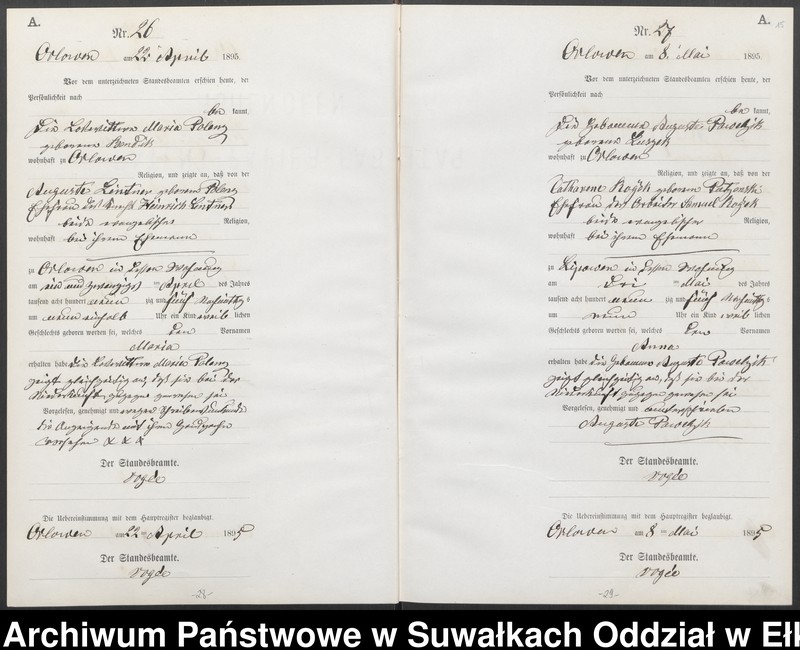 A.
Nr. 26
Orlowen am 22 April 1895.
Vor dem unterzeichneten Standesbeamten erschien heute, der
Persönlichkeit nach
be kannt,
die Maria Polenz
geborene
wohnhaft zu Orlowen
Religion, und zeigte an, daß von der
Auguste Lindner geborene Polenz
Ehefrau des Heinrich Lindner
beide evangelischer Religion,
wohnhaft bei ihrem Ehemann
zu Orlowen in dessen Wohnung
am ein und zwanzigsten April des Jahres
tausend acht hundert neun zig und fünf
um neun einhalb Uhr ein Kind weib lichen
Geschlechts geboren worden sei, welches den Vornamen
Maria
erhalten habe. Die Maria Polenz
zeigt gleichzeitig an, daß sie bei der
Niederkunft zugegen gewesen sei
Vorgelesen, genehmigt und wegen
die Anzeigende mit ihrem Handzeichen
versehen X X X
Der Standesbeamte.
Vogée
Die Uebereinstimmung mit dem Hauptregister beglaubigt.
Orlowen am 22 ten April 1895
Der Standesbeamte.
Vogée
-28-
A.
15
Nr. 27
Orlowen am 8. Mai 1895.
Vor dem unterzeichneten Standesbeamten erschien heute, der
Persönlichkeit nach
be kannt,
die Hebamme Auguste Pawelzik
geborene
wohnhaft zu Orlowen
Religion, und zeigte an, daß von der
Catharine geborene
Ehefrau des Arbeiter Samuel
beide evangelischer Religion,
wohnhaft bei ihrem Ehemann
zu Lipowen in dessen Wohnung
am drei ten Mai des Jahres
tausend acht hundert neun zig und fünf
um neun Uhr ein Kind weib lichen
Geschlechts geboren worden sei, welches den Vornamen
Anna
erhalten habe. Die Hebamme Auguste Pawelzik
zeigt gleichzeitig an, daß sie bei der
Niederkunft zugegen gewesen sei
Vorgelesen, genehmigt und unterschrieben
Auguste Pawelzik
Der Standesbeamte.
Vogée
Die Uebereinstimmung mit dem Hauptregister beglaubigt.
Orlowen am 8 ten Mai 1895
Der Standesbeamte.
Vogée
-29-
Archiwum Państwowe w Suwałkach Oddział w Ełk